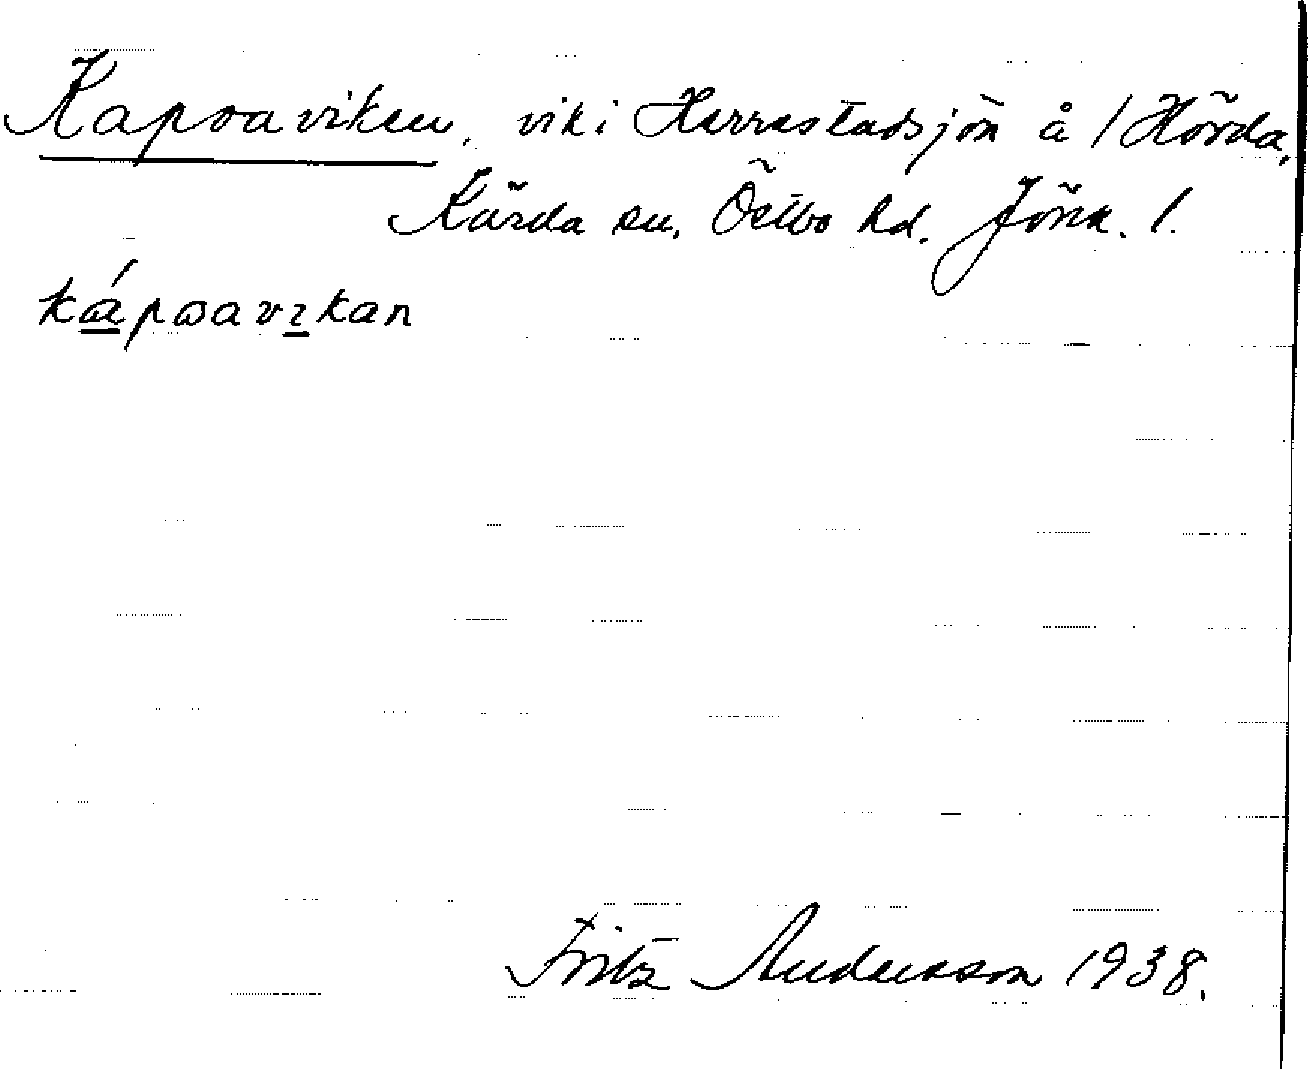 Kaproaviken, vik i Herrestadsjön å 1 Hörda,
Kärda sn. Östbo hd. Jönk. l.
Fritz Andersson 1938.